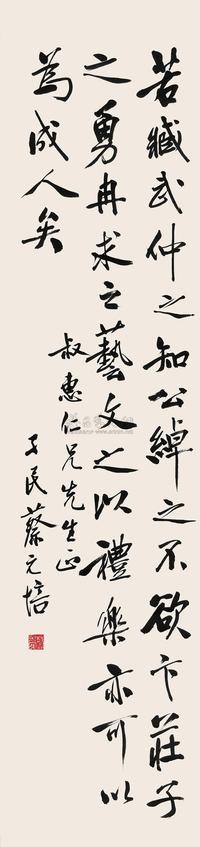 若臧武仲之知公綽之不欲卞莊子
之勇冉求之藝文之以禮樂亦可以
為成人矣
叔惠仁兄先生正
孑民蔡元培